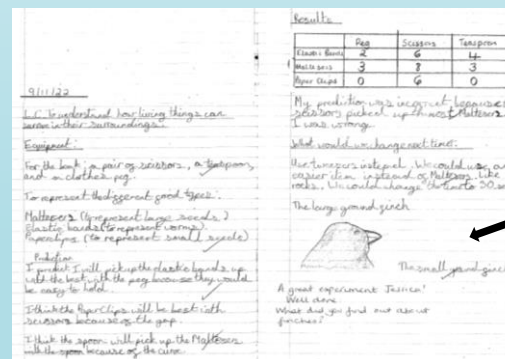 9/11/22
L.C. To understand how living things can
survive in their surroundings.
Equipment:
For the beak; a pair of scissors, a teaspoon,
and a clothes peg.
To represent the different food types:
Maltesers (to represent large seeds.)
Elastic bands (to represent worms).
Paperclips (to represent small seeds)
Prediction
I predict I will pick up the elastic bands up
with the best with the peg because they would
be easy to hold.
I think the Paper Clips will be best with
scissors because of the gap.
I think the spoon will pick up the Maltesers
with the spoon because of the curve.
Results
Peg Scissors Teaspoon
Elastic Bands 2 6 4
Maltesers 3 8 3
Paper Clips 0 6 0
My prediction was incorrect because
scissors picked up the most Maltesers
I was wrong.
What would we change next time:
Use tweezers instead. We could use an
easier item instead of Maltesers like
rocks. We could change the time to 30
The large ground finch
The small ground finch
A great experiment Jessica!
Well done.
What did you find out about
finches?